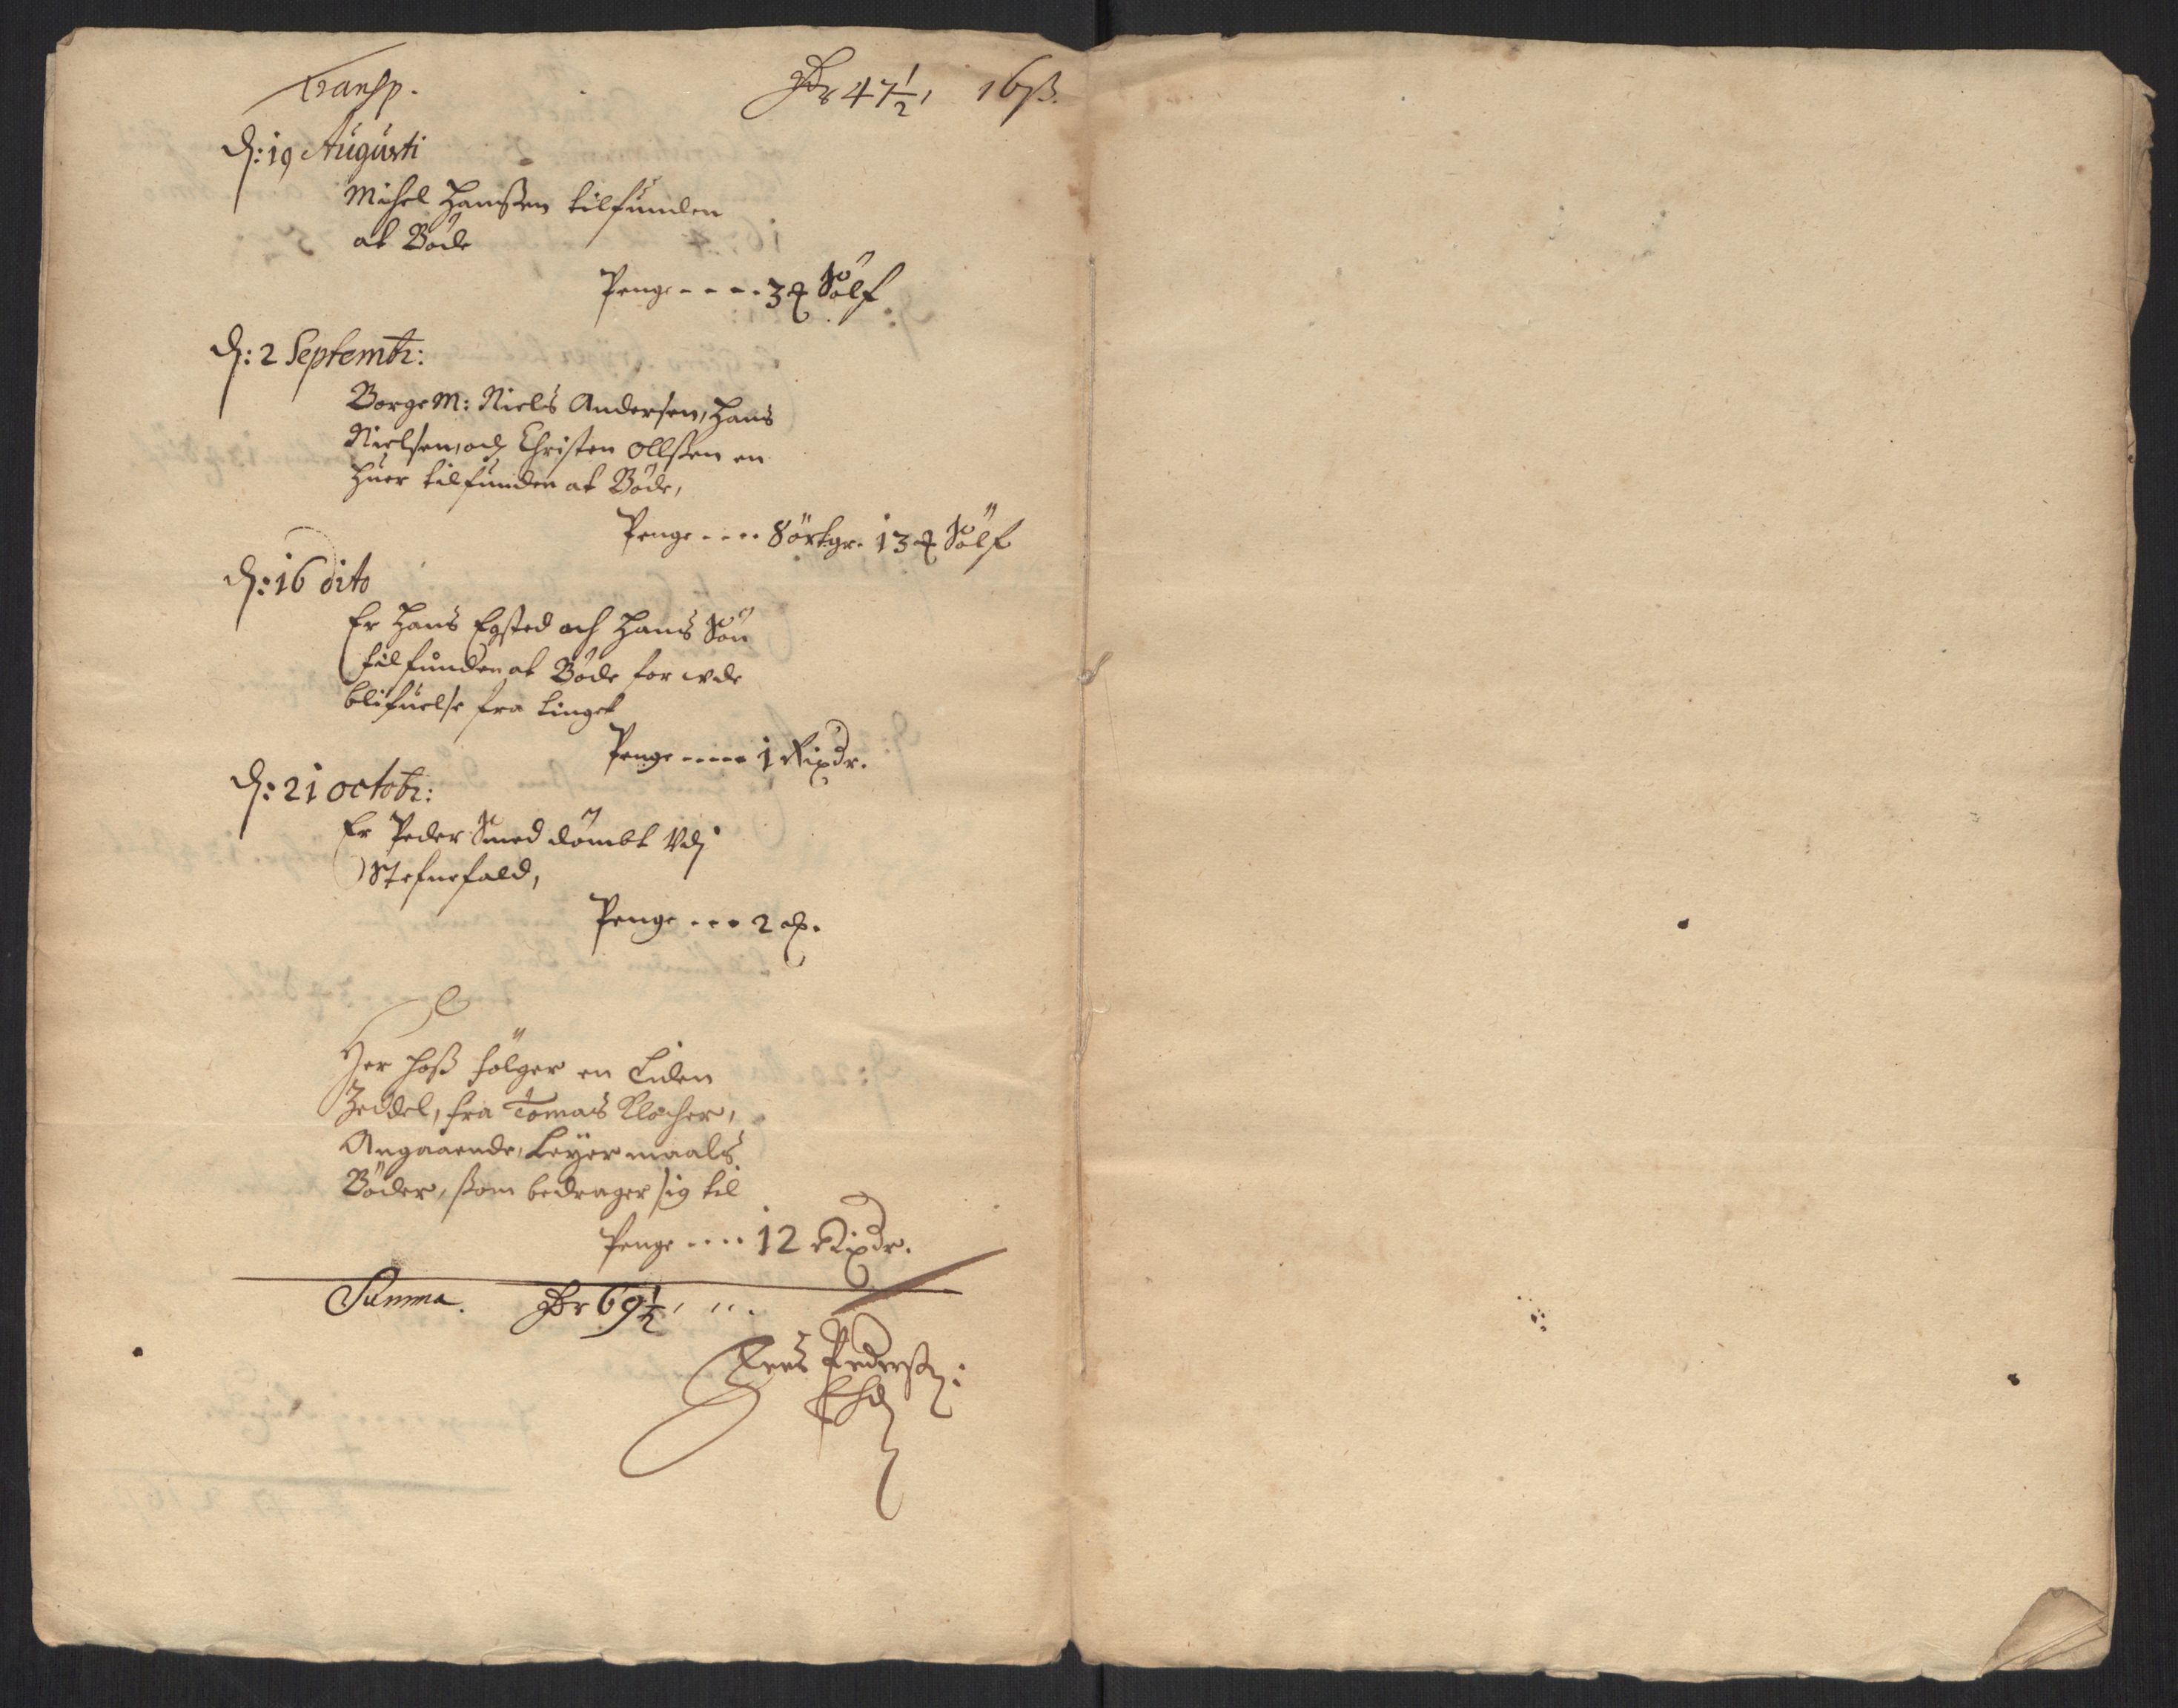 Transp. Dr 47½, 16 ß.
D: 19 Augusti
Michel Hanssen tilfunden
at Böde
Penge - - - - 3 Sölf
D: 2 Septembr:
Borge M: Niels Andersen, Hans
Nielsen, och Christen Ollssen en
huer tilfunden at Böde,
Penge - - - - 8 örtgr. 13 Sölf
D: 16 dito
Er Hans Egsted och Hans Sön
tilfunden at Böde for wde
blifuelse fra tinget
Penge - - - - - 1 Rixdr.
D: 21 octobr:
Er Peder Smed dömbt Vdj
Stefnefald,
Penge - - - 2
Her hoss fölger en Liden
Zeddel, fra Tomas Klocher,
Angaaende, Leyermaals
Böder, ssom bedrager sig til
Penge - - - - 12 Rixdr.
Summa. Dr 69½, ,, .
Pederss: